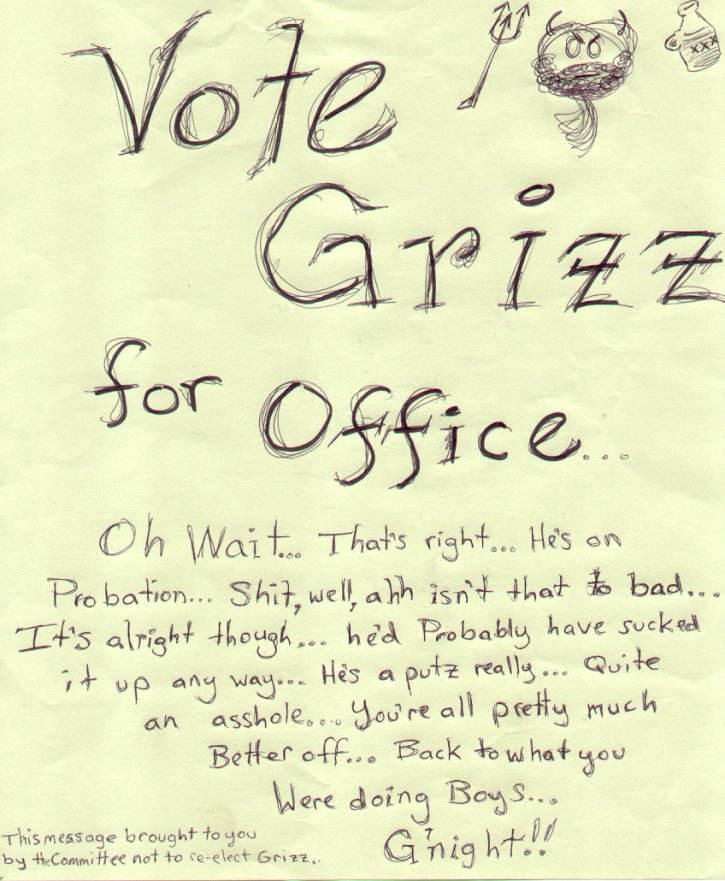 xxx
Vote
Grizz
for Office...
Oh Wait... That's right... He's on
Probation... Shit, well, ahh isn't that to bad...
It's alright though... he'd Probably have sucked
it up any way... He's a putz really... Quite
an asshole.... You're all pretty much
Better off... Back to what you
Were doing Boys...
G'night!!
This message brought to you
by the Committee not to re-elect Grizz..